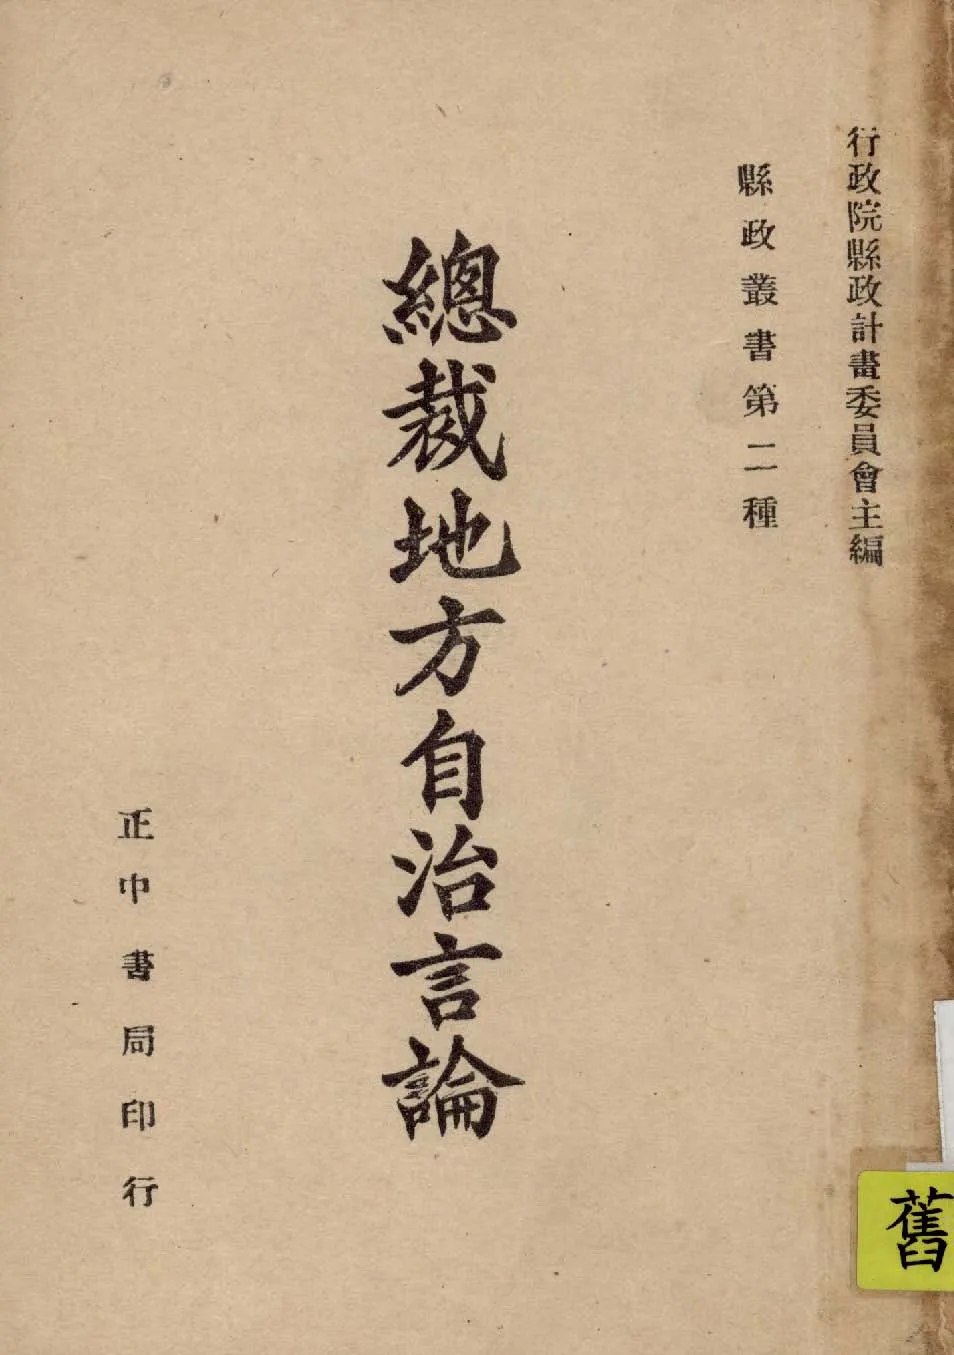 行政院縣政計畫委員會主編
縣政叢書第二種
總裁地方自治言論
正中書局印行
舊